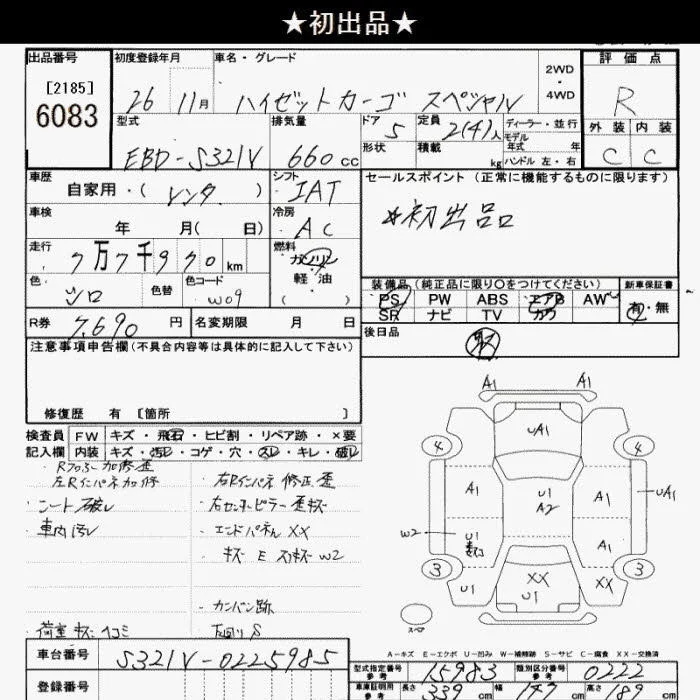 ★初出品★
出品番号
[2185]
6083
初度登録年月
26 11月
車名・グレード
ハイゼットカーゴ スペシャル
2WD
・
4WD
評価点
R
型式
EBD-S321V
排気量
660cc
ドア 5
形状
定員 2(4)人
積載 kg
ディーラー・並行
モデル
年式 年
ハンドル 左・右
外装 内装
C C
車歴
自家用・(レンタ)
シフト
IAT
セールスポイント (正常に機能するものに限ります)
*初出品
車検
年 月( 日)
冷房
AC
走行
7万7千970km
燃料
ガソリン
軽・油
( ・ )
色
シロ
色替
色コード
W09
装備品(純正品に限り○をつけてください)
PS PW ABS エアB AW
SR ナビ TV カワ
新車保証書
有・無
R券 7,690円
名変期限 月 日
後日品
注意事項申告欄(不具合内容等は具体的に記入して下さい)
修復歴 有 [箇所 ]
検査員
記入欄
FW キズ・飛石・ヒビ割・リペア跡・×要
内装 キズ・汚レ・コゲ・穴・スレ・キレ・破レ
左Rインパネ加修
・シート破レ
・車内汚レ
荷室キズヘコミ
・右Rインパネ修正歪
・右センターピラー歪
・エンドパネルXX
・カンバン跡
A1 A1
UA1
4 4
A1
U1
A2
A1
UA1
W2
U1
A1
3 3
U1
XX
U1
XX
スペア
A-キズ E-エクボ U-凹み W-補修跡 S-サビ C-腐食 XX-交換済
車台番号
S321V-0225985
登録番号
型式指定番号
参考
15983
類別区分番号
参考
0222
車庫証明用
参考
長さ 339cm 幅 147cm 高さ 189cm